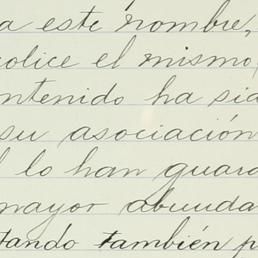 a este nombre,
olice el mismo,
ntenido ha sid
su asociación
l lo han guard
mayor abunda
tando también p